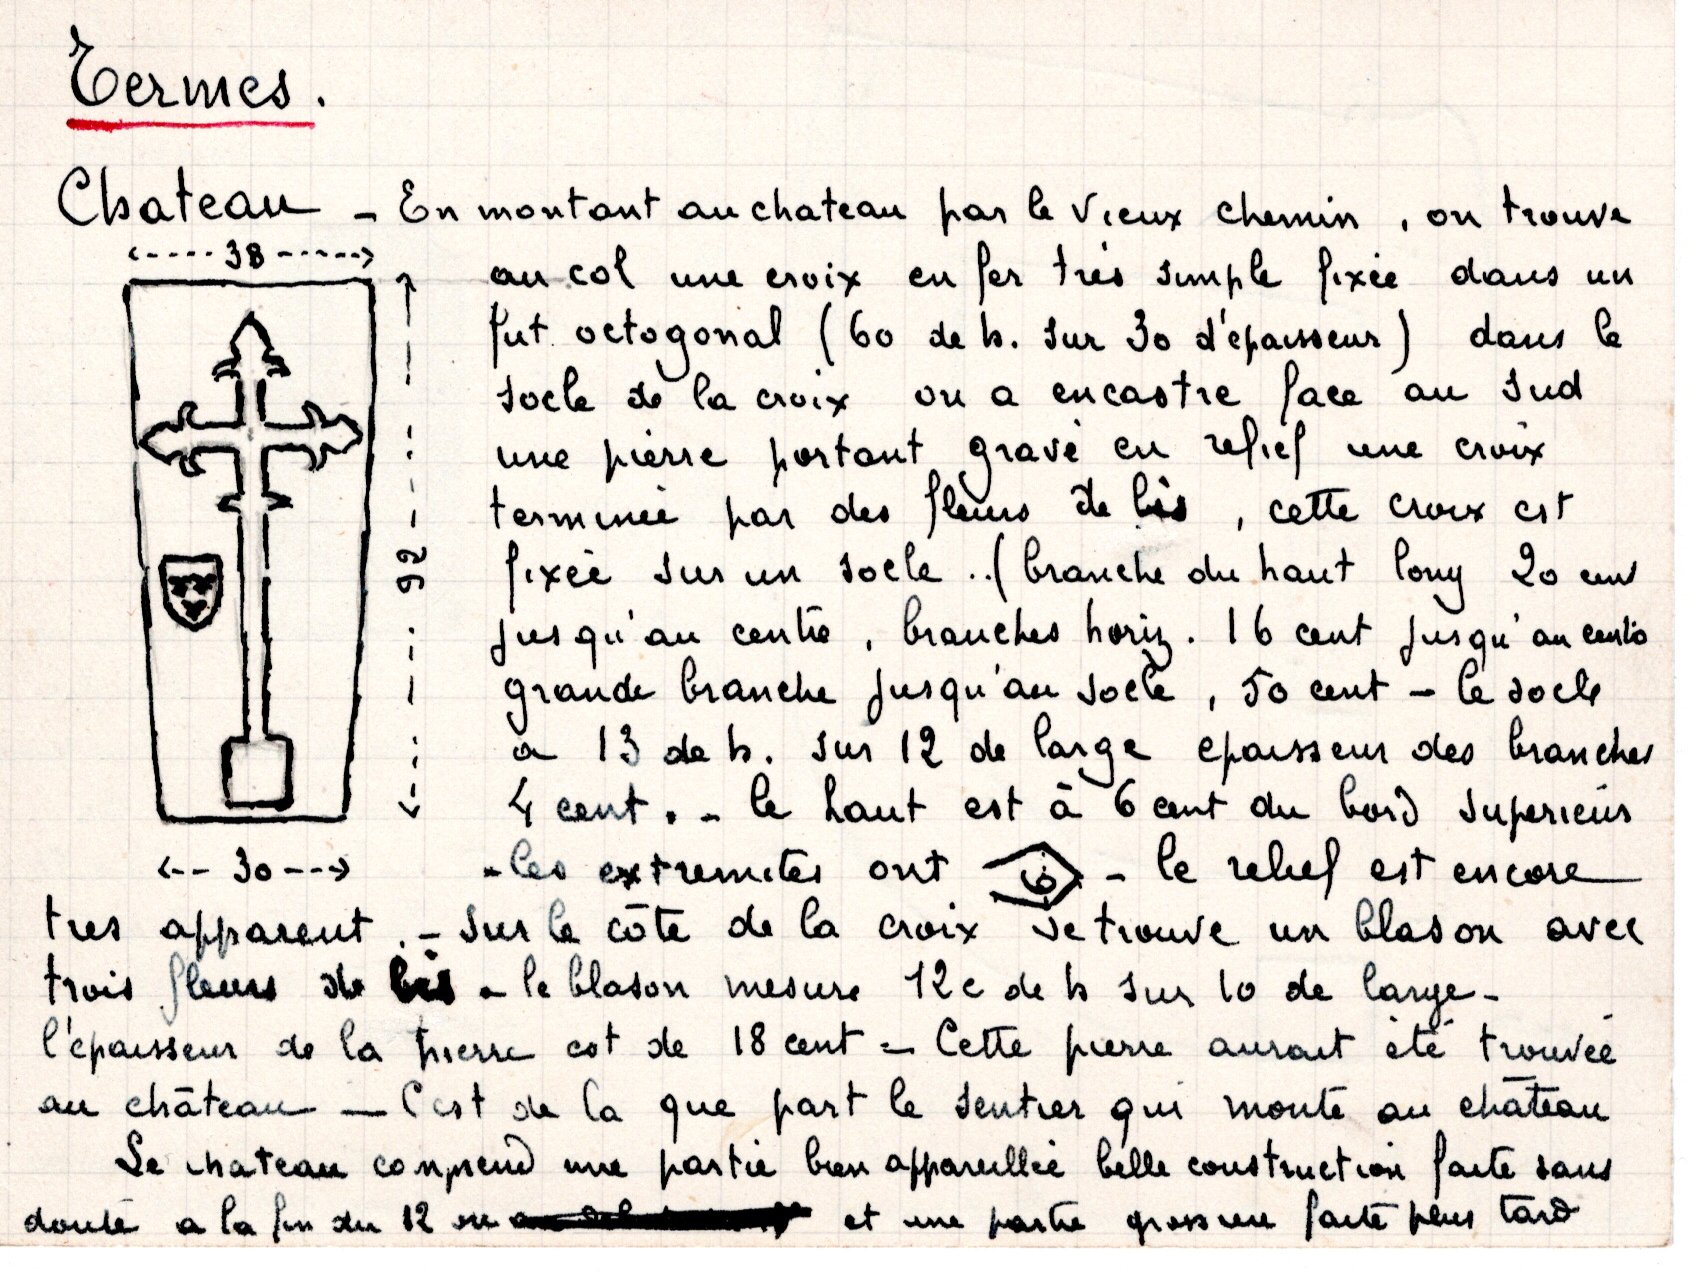 Termes.
Chateau - En montant au chateau par le vieux chemin, on trouve
38
au col une croix en fer très simple fixée dans un
fut octogonal (60 de h. sur 30 d'épaisseur) dans le
socle de la croix on a encastre face au sud
une pierre portant gravé en relief une croix
terminée par des fleurs de lis, cette croix est
92
fixée sur un socle ..(branche du haut long 20 cent
jusqu'au centre, branches horiz. 16 cent jusqu'au centre
grande branche jusqu'au socle, 50 cent - le socle
a 13 de h. sur 12 de large epaisseur des branches
4 cent. - le haut est à 6 cent du bord superieur
30
- les extremites ont 6 - le relief est encore
tres apparent. - sur le côte de la croix se trouve un blason avec
trois fleurs de lis - le blason mesure 12c de h sur 10 de large -
l'épaisseur de la pierre est de 18 cent - Cette pierre aurait été trouvée
au château - C'est de la que part le sentier qui monte au château
Le chateau comprend une partie bien appareillée belle construction faite sans
doute a la fin du 12 et une partie faite plus tard